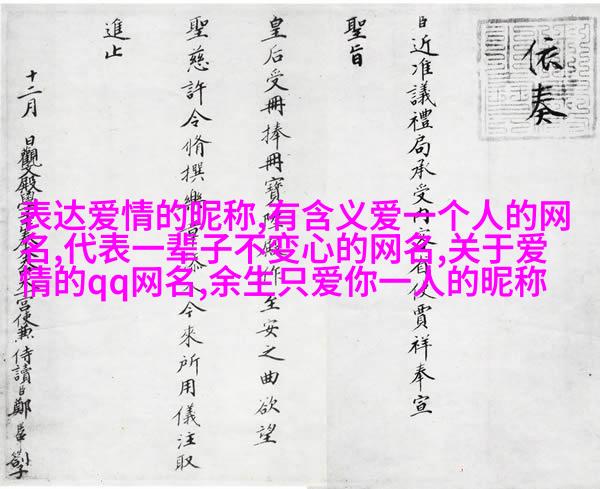 依奏
臣近准議禮局承受內
使賈祥奉宣
聖旨
皇后受冊捧冊寶
至安之曲欲望
聖慈許令脩撰樂
今來所用儀注取
進止
十二月 日觀文殿學士
宮使兼侍讀臣鄭
表达爱情的昵称,有含义爱一个人的网
名,代表一辈子不变心的网名,关于爱
情的qq网名,余生只爱你一人的昵称